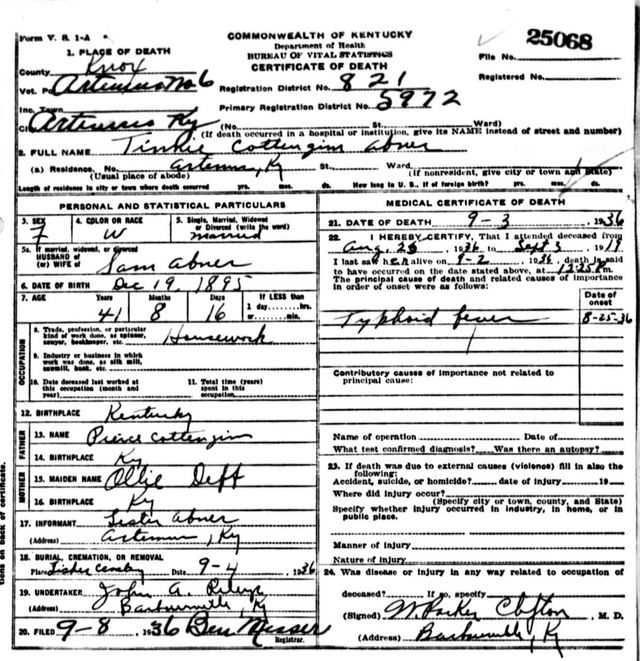 Form V. S. 1-A
COMMONWEALTH OF KENTUCKY
Department of Health
BUREAU OF VITAL STATISTICS
CERTIFICATE OF DEATH
File No. 25068
Registered No.
1. PLACE OF DEATH
County Knox
Vot. Pc Artemus No 6
Registration District No. 821
Inc. Town
Primary Registration District No. 5972
Artemus Ky (No. St. Ward)
(If death occurred in a hospital or institution, give its NAME instead of street and number)
2. FULL NAME Tinkie Cottengim Abner
(a) Residence. No. Artemus, Ky St. Ward
(Usual place of abode) (If nonresident, give city or town and State)
Length of residence in city or town where death occurred yrs. mos. ds. How long in U. S., if of foreign birth? yrs. mos. ds.
PERSONAL AND STATISTICAL PARTICULARS
3. SEX F
4. COLOR OR RACE W
5. Single, Married, Widowed or Divorced (write the word) Married
5a. If married, widowed, or divorced
HUSBAND of
(or) WIFE of Sam Abner
6. DATE OF BIRTH Dec 19, 1895
7. AGE Years Months Days If LESS than
1 day, hrs.
or min.
41 8 16
OCCUPATION
8. Trade, profession, or particular
kind of work done, as spinner,
sawyer, bookkeeper, etc. Housework
9. Industry or business in which
work was done, as silk mill,
sawmill, bank, etc.
10. Date deceased last worked at
this occupation (month and
year)
11. Total time (years)
spent in this
occupation
12. BIRTHPLACE Kentucky
FATHER
13. NAME Pierce Cottengim
14. BIRTHPLACE Ky
MOTHER
15. MAIDEN NAME Ollie Deft
16. BIRTHPLACE Ky
17. INFORMANT Lester Abner
(Address) Artemus, Ky
18. BURIAL, CREMATION, OR REMOVAL
Place Date 9-4, 1936
19. UNDERTAKER John A.
(Address) Barbourville, Ky
20. FILED 9-8, 1936 Ben Messer
Registrar.
MEDICAL CERTIFICATE OF DEATH
21. DATE OF DEATH 9-3 1936
22. I HEREBY CERTIFY, That I attended deceased from
Aug. 26, 1936 to Sept 3, 1919
I last saw her alive on 9-2, 1936, death is said
to have occurred on the date stated above, at 12:25 P m.
The principal cause of death and related causes of importance
in order of onset were as follows:
Date of onset
Typhoid fever 8-25-36
Contributory causes of importance not related to
principal cause:
Name of operation Date of
What test confirmed diagnosis? Was there an autopsy?
23. If death was due to external causes (violence) fill in also the
following:
Accident, suicide, or homicide? date of injury 19
Where did injury occur?
(Specify city or town, county, and State)
Specify whether injury occurred in industry, in home, or in
public place.
Manner of injury
Nature of injury
24. Was disease or injury in any way related to occupation of
deceased? If so, specify
(Signed) W. Parker Clifton, M. D.
(Address) Barbourville, Ky
tions on back of certificate.